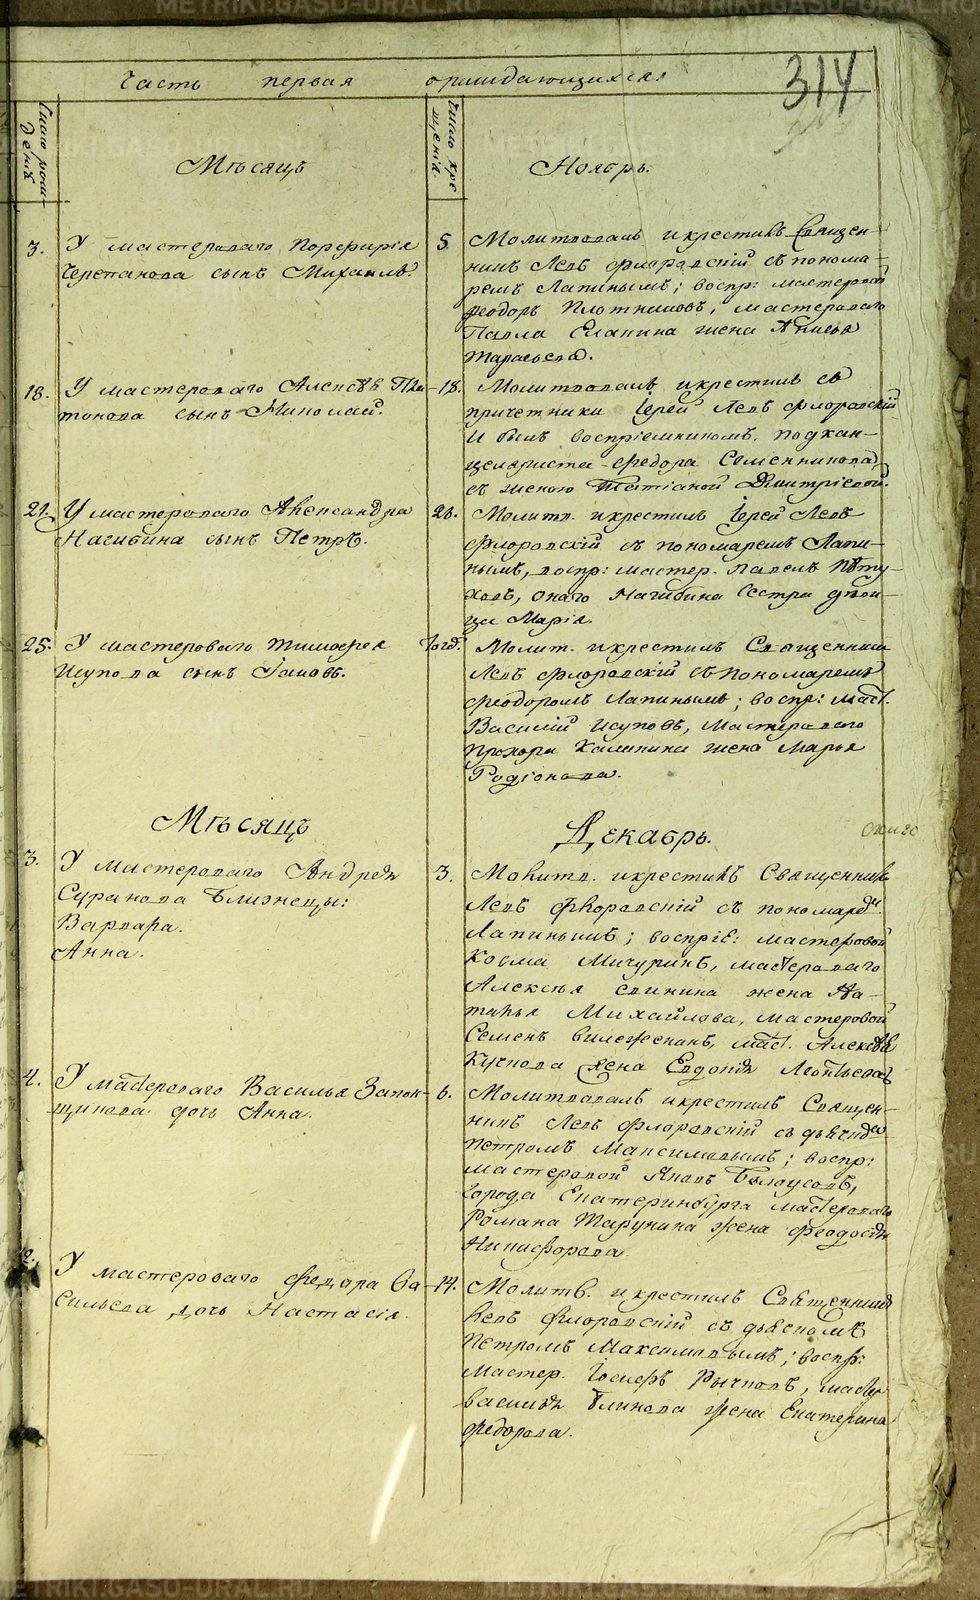 METRIKI.GASU-URAL.RU
314
Часть первая о раждающихся
Число рож-
денія
Мѣсяцъ
Число кре
щенія
Ноябрь.
3.
У мастероваго Порфирія
Черепанова сынъ Михаилъ.
5
Молитвовалъ и крестилъ Священ-
никъ Левъ Флоровскій съ понома-
ремъ Лапинымъ; воспр: мастеровой
Ѳеодоръ Плотниковъ, мастероваго
Павла Елапина жена Анисья
Тарасьева.
18.
У мастероваго Алексѣя Пла-
тонова сынъ Николай.
18.
Молитвовалъ и крестилъ съ
причетники Іерей Левъ Флоровскій
И былъ воспріемникомъ, подкан-
целяриста Ѳедора Семенникова,
съ женою Татіаной Дмитріевой.
21.
У мастероваго Александра
Нагибина сынъ Петръ.
23.
Молитв. и крестилъ Іерей Левъ
Флоровскій съ пономаремъ Лапи-
нымъ, воспр: мастер. Павелъ Пѣту-
ховъ, онаго Нагибина Сестра дѣви-
ца Марія.
25.
У мастероваго Тимофея
Исупова сынъ Іаковъ.
Тогд.
Молит. и крестилъ Священникъ
Левъ Флоровскій съ пономаремъ
Ѳеодоромъ Лапинымъ; воспр: маст.
Василій Исуповъ, Мастероваго
Прохора Калинина жена Марья
Родіонова.
Мѣсяцъ
Декабрь.
3.
У мастероваго Андрея
Суранова Близнецы:
Варвара.
Анна.
3.
Молитв. и крестилъ Священникъ
Левъ Флоровскій съ пономаремъ
Лапинымъ; воспріе: мастеровой
Косма Мичуринъ, мастероваго
Алексѣя Свинина жена На-
талья Михайлова, мастеровой
Семенъ маст. Алексѣя
жена Евдокія Леонтьева
4.
У мастероваго Василья Запок-
щикова дочь Анна.
6.
Молитвовалъ и крестилъ Священ-
никъ Левъ Флоровскій съ дьячкомъ
Петромъ Максимовымъ; воспр:
мастеровой Яковъ Бѣлоусовъ,
города Екатеринбурга мастероваго
Романа Тарунина жена Ѳеодосья
Никифорова.
У мастероваго Федора Ва-
сильева дочь Настасія.
14.
Молитв. и крестилъ Священникъ
Левъ Флоровскій съ дьячкомъ
Петромъ Максимовымъ; воспр:
мастер. Іосифъ Рычковъ, мастер
Василья Блинова жена Екатерина
Федорова.